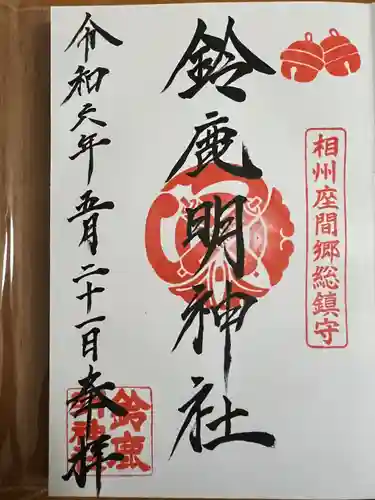 相州座間郷総鎮守
鈴鹿明神社
令和六年五月二十一日
奉拝
鈴鹿明神社